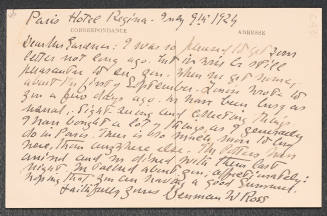 Paris Hotel Regina - July 9th 1924
CORRESPONDANCE ADRESSE
Dear Mrs Gardner: I was so pleased to get your
letter not long ago. But it was be still
pleasanter to see you. when we get home,
about the first of September. Simon wrote to
you a few days ago. We have been busy as
usual, sight seeing and collecting things
I have bought a lot of things, as I generally
do in Paris. There is so much more to buy
here, than anywhere else. The Potters have
arrived and we dined with them last
night. We talked about you, affectionately:
hoping that you are having a good Summer.
Faithfully yours Denman W Ross